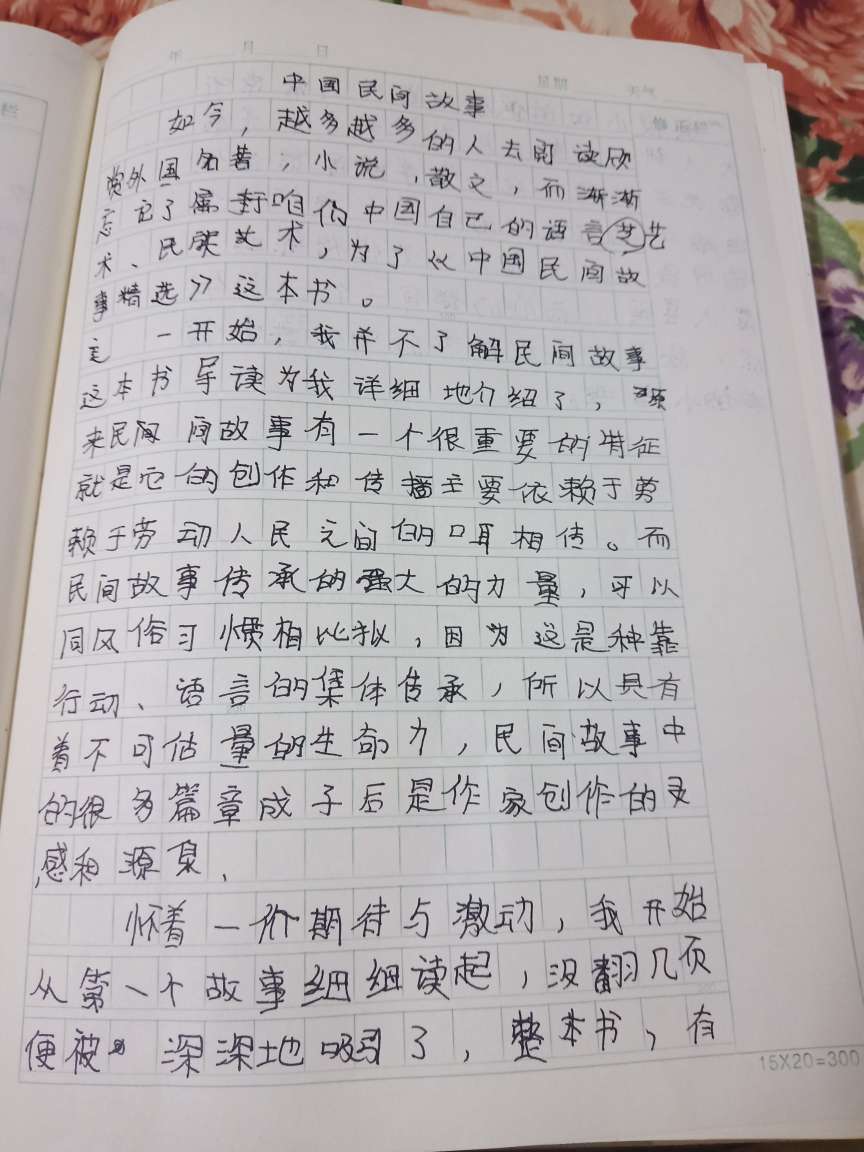 年 月 日 星期 天气
中国民间故事
如今，越多越多的人去阅读欣
赏外国名著，小说，散文，而渐渐
忘记了属于咱们中国自己的语言艺
术、民族艺术，为了《中国民间故
事精选》这本书。
一开始，我并不了解民间故事
这本书导读为我详细地介绍了，原
来民间 间故事有一个很重要的特征
就是它的创作和传播主要依赖于劳
赖于劳动人民之间的口耳相传。而
民间故事传承的强大的力量，可以
同风俗习惯相比拟，因为这是种靠
行动、语言的集体传承，所以具有
着不可估量的生命力，民间故事中
的很多篇章成了后是作家创作的灵
感和源泉，
怀着一份期待与激动，我开始
从第一个故事细细读起，没翻几页
便被 深深地吸引了，整本书，有
15X20=300